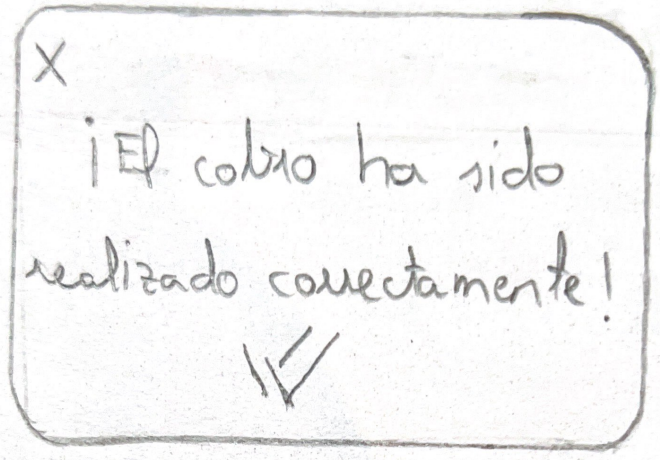 X
¡El cobro ha sido
realizado correctamente!